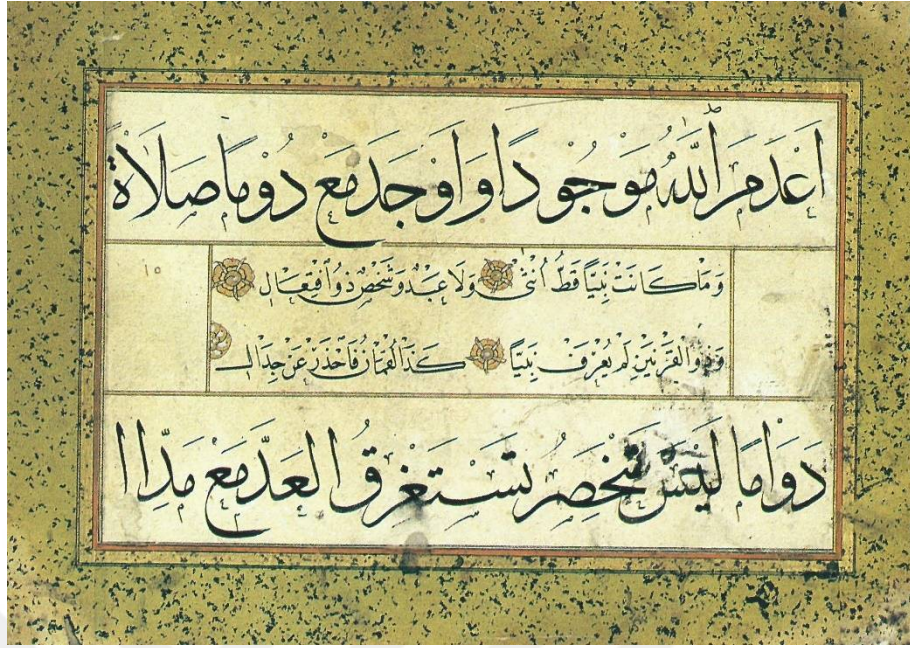 اَعْدَمَ اللّٰهُ مَوْجُودًا وَاَوْجَدَ مَعْ دُوْمًا صَلَاةً
وَمَا كَانَتْ نَبِيًّا قَطُّ اُنْثٰى وَلَا عَبْدٌ وَشَخْصٌ ذُو افْتِعَالِ
١٥
وَذُو الْقَرْنَيْنِ لَمْ يُعْرَفْ نَبِيًّا كَذَا لُقْمَانُ فَاحْذَرْ عَنْ جِدَالِ
دَوَامًا لَيْسَ تَنْحَصِرُ تَسْتَغْرِقُ الْعَدَّ مَعْ مَدِّ اا